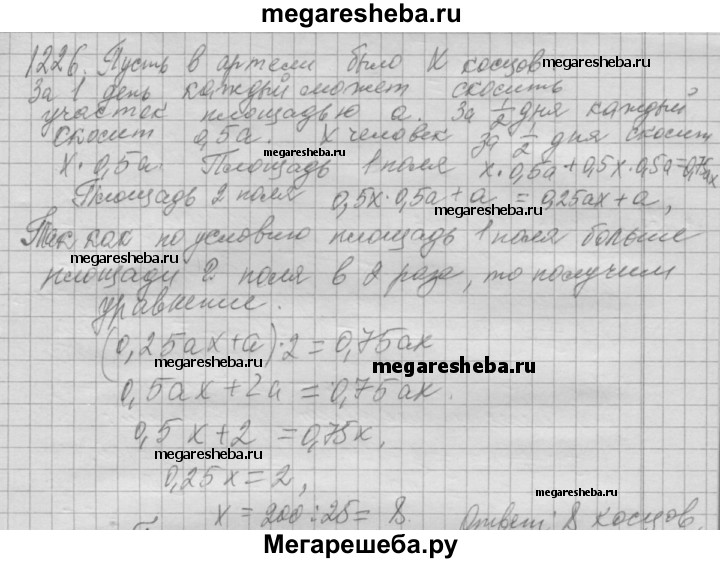 megaresheba.ru
1226. Пусть в артели было х косцов.
megaresheba.ru
За 1 день каждый может скосить
участок площадью а. За 1/2 дня каждый
скосит 0,5а. х человек за 1/2 дня скосит
megaresheba.ru
х·0,5а. Площадь 1 поля х·0,5а+0,5х·0,5а=0,75ах
Площадь 2 поля 0,5х·0,5а+а=0,25ах+а,
Так как по условию площадь 1 поля больше
площади 2 поля в 2 раза, то получим
уравнение.
(0,25ах+а)·2=0,75ах
megaresheba.ru
megaresheba.ru
0,5ах+2а=0,75ах.
0,5х+2=0,75х,
megaresheba.ru
megaresheba.ru
0,25х=2,
х=200:25=8. Ответ: 8 косцов.
Мегарешеба.ру